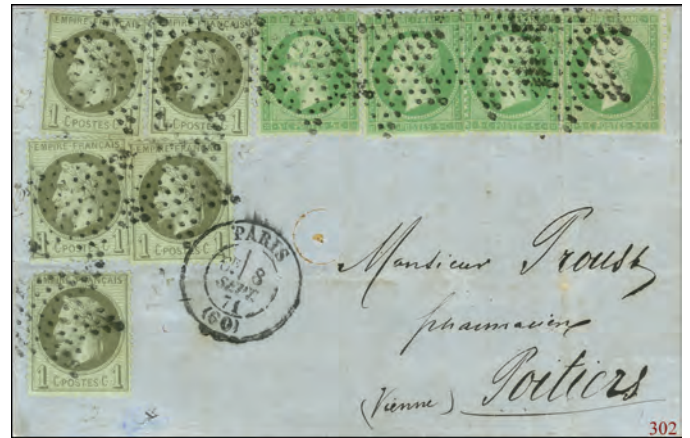 EMPIRE FRANÇAIS
1 C POSTES C 1
EMPIRE FRANÇAIS
1 C POSTES C 1
EMPIRE FRANÇAIS
1 C POSTES C 1
EMPIRE FRANÇAIS
1 C POSTES C 1
EMPIRE FRANÇAIS
1 C POSTES C 1
PARIS
8
SEPT.
71
(60)
Monsieur Proust
pharmacien
Poitiers
(Vienne)
302